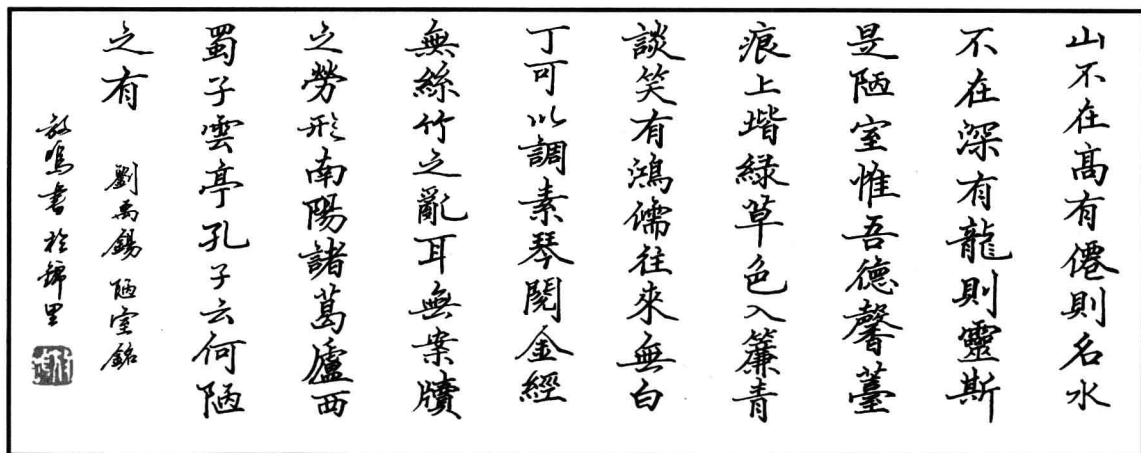 山不在高有僊則名水
不在深有龍則靈斯
是陋室惟吾德馨薹
痕上堦緑草色入簾青
談笑有鴻儒往來無白
丁可以調素琴閱金經
無絲竹之亂耳無案牘
之勞形南陽諸葛廬西
蜀子雲亭孔子云何陋
之有
劉禹錫陋室銘
書於錦里